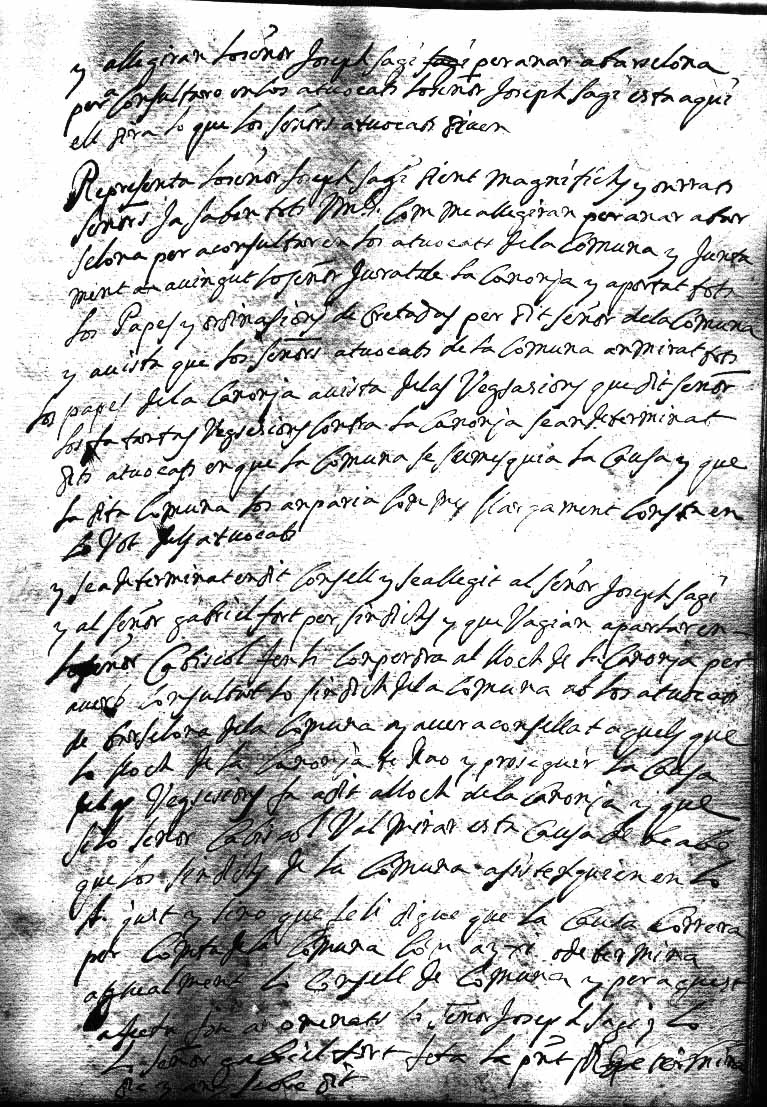 y allegiran loseñor Joseph Sagi per anar abarselona
per consultaro en los atvocats loseñor Joseph Sagi esta aqui
ell dira lo que los señors atvocats diuen
Representa loseñor Joseph Sagi dient magnifichs y onrrats
señors Ja saben tots Vms. Com me allegiran per anar abar
selona per aconsultar en los atvocats dela Comuna y Junta
ment an avingut lo señor Jurat de la Canonja y aportat tots
los Papes y ordinasions de Cretadas per dit señor dela Comuna
y avista que los señors atvocats de la Comuna an mirat tots
los papes dela Canonja avista delas Vegsasions que dit señor
los fa tantas Vegsasions Contra la Canonja sean determinat
dits atvocats en que la Comuna se sumisquia la Causa y que
la dita Comuna los anparia Com mes llargament Consta en
lo Vot dels atvocats
y sea determinat en dit Consell y sea llegit al señor Joseph Sagi
y al señor gabriel fort per sindichs y que Vagian apartar en
lo señor Cabiscol tenint Conperdra al lloch de la Canonja per
aver Consultat lo sindich dela Comuna ab los atvocats
de barselona dela Comuna y aver aconsellat aquells que
lo lloch de la Canonja te Rao y proseguir la Causa
delas Vegsasions fa adit alloch dela Canonja y que
si lo señor Cabiscol Vol mirar esta Causa de be abe
que los sindichs de la Comuna asistesquien en lo
just y sino que se li digue que la Causa Correra
per Compta dela Comuna Com axi determina
aqualment lo Consell de Comuna y per aquest
afecta son anomenats lo señor Joseph Sagi y lo
lo señor gabriel fort feta la pnt
die y any sobre dit